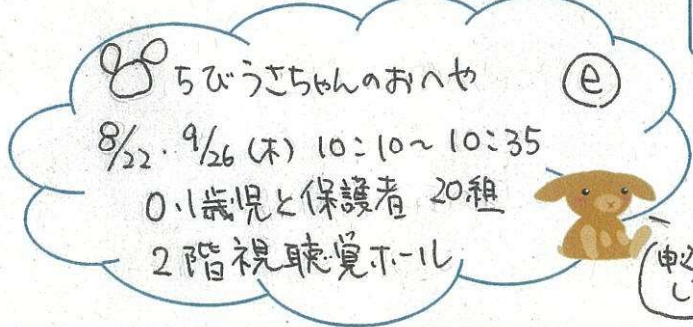 ちびうさちゃんのおへや ⓔ
8/22・9/26(木) 10:10～10:35
0.1歳児と保護者 20組
2階視聴覚ホール
申込
し